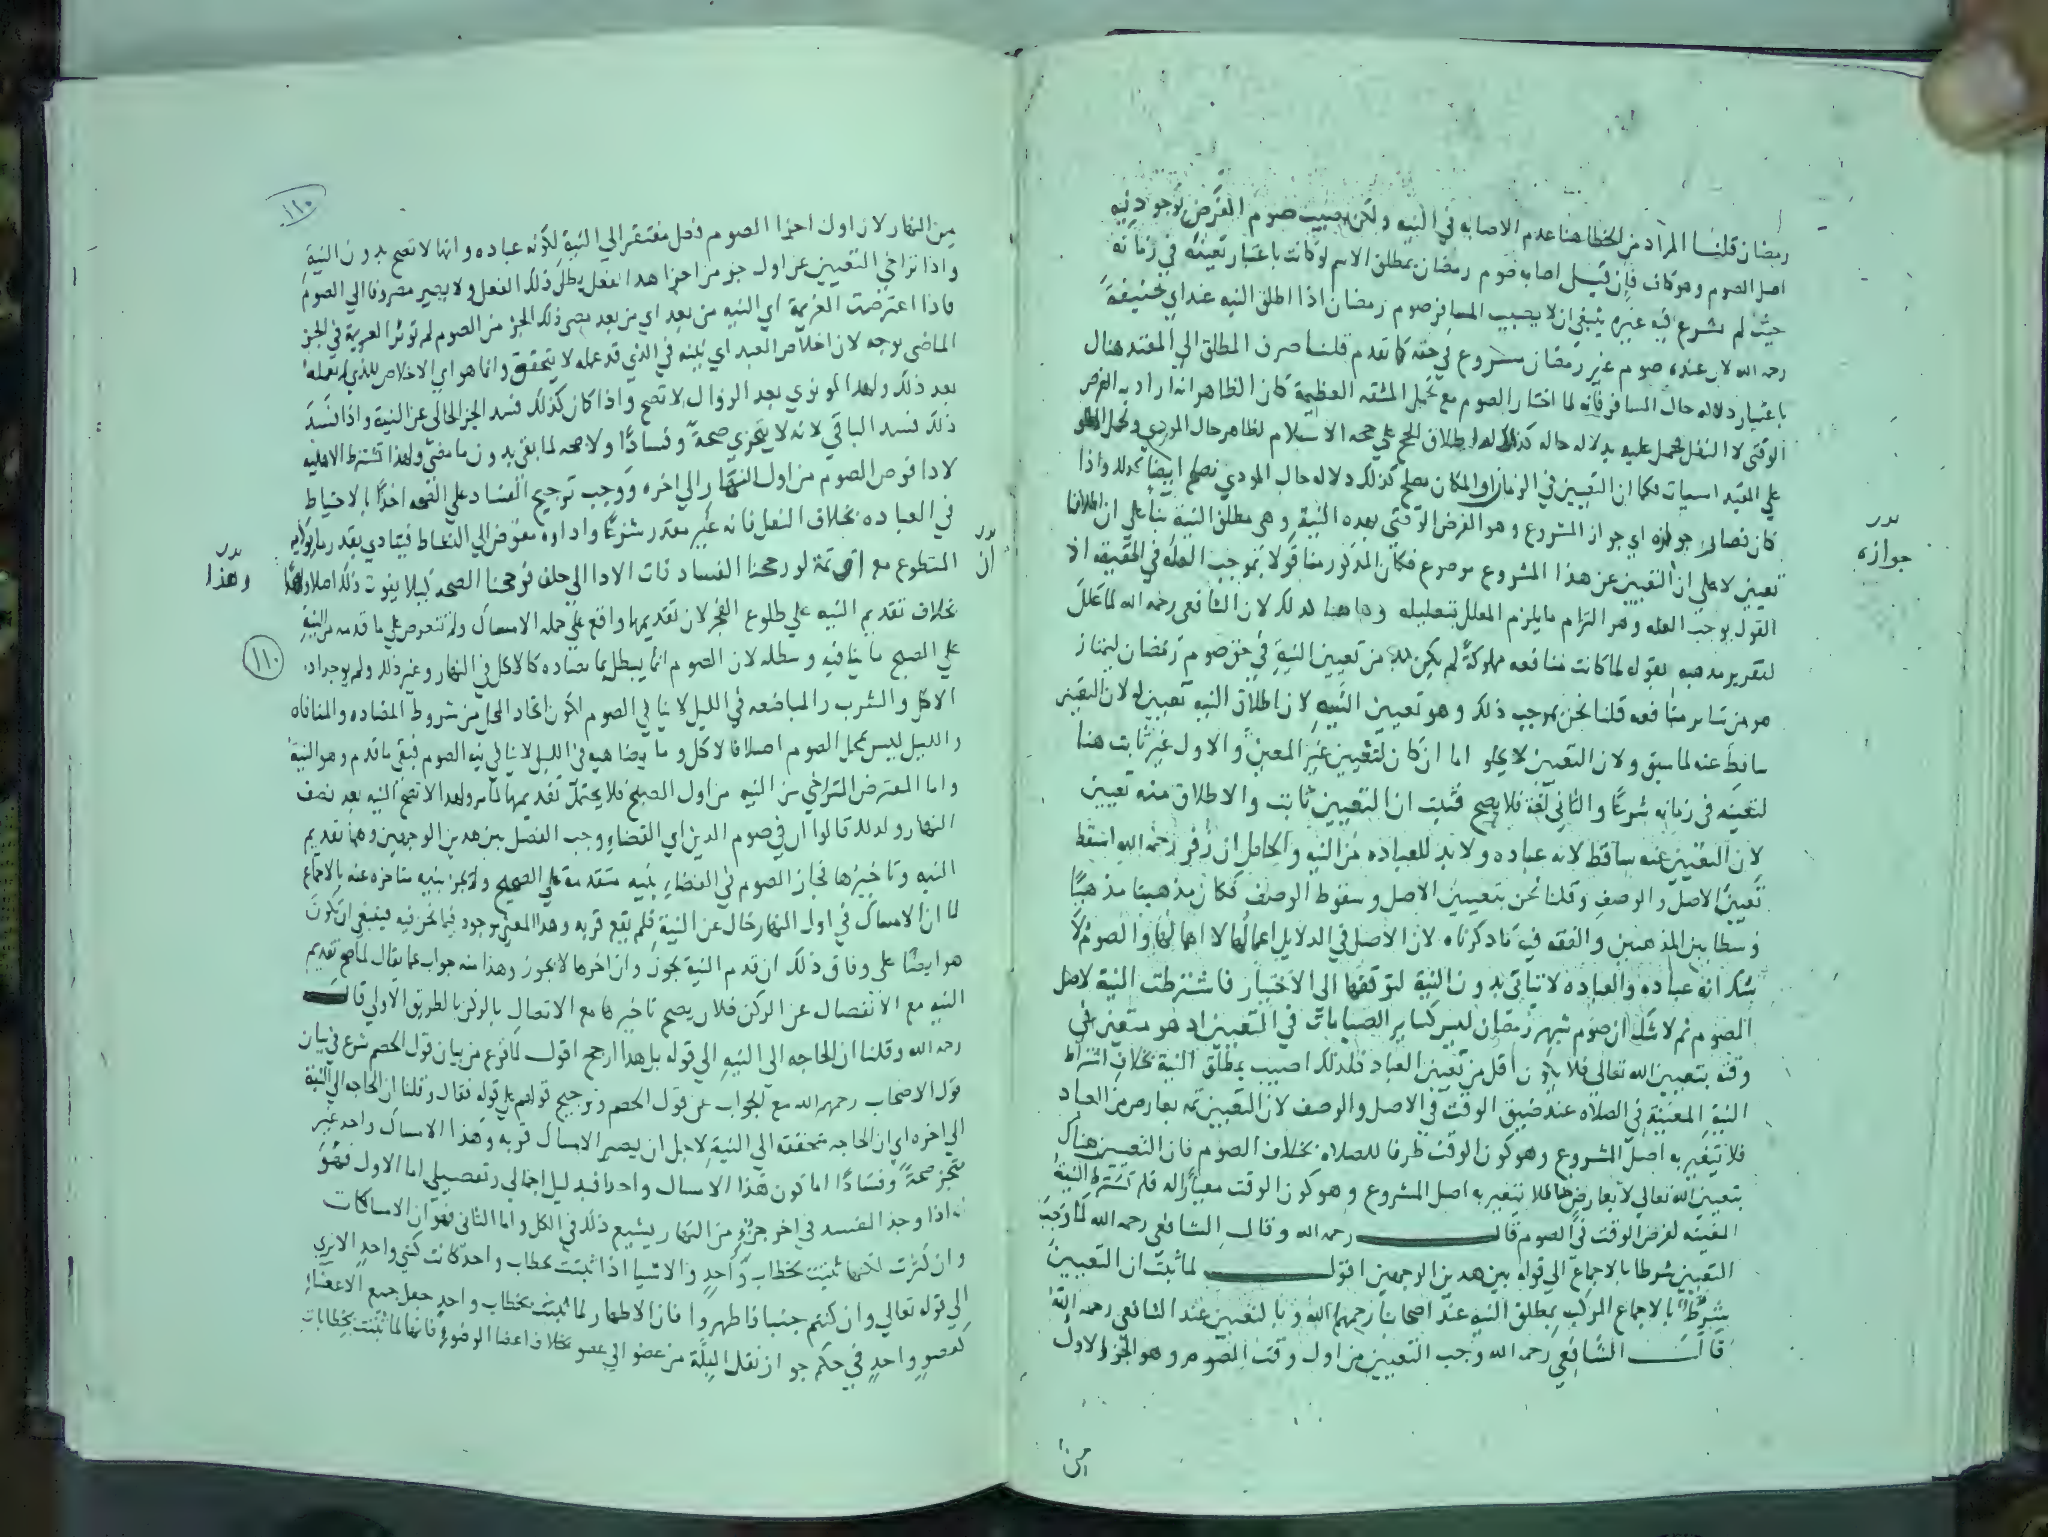 رمضان قلنا المراد من الخطا هنا عدم الاصابه في النيه ولكن يصيب صوم الفرض لوجود نية
اصل الصوم وهو كاف فان قيل اصابه صوم رمضان بمطلق الاسم لو كانت باعتبار تعينه في زمانه
حيث لم يشرع فيه غيره ينبغي ان لا يصيب المسافر صوم رمضان اذا اطلق النيه عند ابي حنيفة
رحمه الله لان عنده صوم غير رمضان مشروع في حقه كما تقدم قلنا صرف المطلق الي المقيد هنا
باعتبار دلاله حال المسافر فانه لما اختار الصوم مع تحمل المشقه العظيمة كان الظاهر انه اراد به الفرض
الوقتي لا النفل فحمل عليه بدلاله حاله اطلاق الحج علي حجه الاسلام لظاهر حال المودي
علي المقيد فكما ان التعيين في الزمان والمكان يصلح كذلك دلاله حال المودي تصلح ايضا لذلك واذا
كان جوازه اي جواز المشروع وهو الفرض الوقتي بهذه النية وهي مطلق النية بناء علي ان اطلاقنا
تعيين لا علي ان التعيين عن هذا المشروع موضوع فكان المذكور منا قولا بموجب العله في الحقيقه اذ
القول بموجب العله وهو التزام ما يلزم المعلل بتعليله وها هنا كذلك لان الشافعي رحمه الله لما علل
لتقرير مذهبه بقوله لما كانت منافعه مملوكة لم يكن بد من تعيين النية في حق صوم رمضان ليمتاز
هو من سائر منافعه قلنا نحن بموجب ذلك وهو تعيين النيه لان اطلاق النيه تعيين له لان التعيين
ساقط عنه لما سبق ولان التعيين لا يخلو اما ان كان لتعيين غير المعين والاول غير ثابت هنا
لتعينه في زمانه شرعا والثاني لغة فلا يصح فثبت ان التعيين ثابت والاطلاق منه تعيين
لان التعيين عنه ساقط لانه عباده ولا بد للعباده من النيه والحاصل ان زفر رحمه الله اسقط
تعيين الاصل والوصف وقلنا نحن بتعيين الاصل وسقوط الوصف فكان مذهبنا مذهبا
وسطا بين المذهبين والفقه فيه ما ذكرناه لان الاصل في الدلايل اعمالها لا اهمالها والصوم لا
شك انه عباده والعباده لا تتاتي بدون النية لتوقفها الي الاختيار فاشترطت النية لاصل
الصوم ثم لا شك ان صوم شهر رمضان ليس كساير الصيامات في التعيين اذ هو متعين في
وقته بتعيين الله تعالي فلا يكون اقل من تعيين العباد فلذلك اصيب بمطلق النية بخلاف اشتراط
النية المعينة في الصلاه عند ضيق الوقت في الاصل والوصف لان التعيين ثمه بعارض من العباد
فلا يتغير به اصل المشروع وهو كون الوقت ظرفا للصلاه بخلاف الصوم فان التعيين هناك
بتعيين الله تعالي لا بعارض فلا يتغير به اصل المشروع وهو كون الوقت معيارا له فلم تشترط النية
المعينه لفرض الوقت في الصوم قال رحمه الله وقال الشافعي رحمه الله لما وجب
التعيين شرطا بالاجماع الي قوله بين هذين الوجهين اقول لما ثبت ان التعيين
شرط بالاجماع المركب بمطلق النيه عند اصحابنا رحمهم الله وبالتعيين عند الشافعي رحمه الله
قال الشافعي رحمه الله وجب التعيين من اول وقت الصوم وهو الجزء الاول
جوازه
من
من النهار لان اول اجزا الصوم فعل مفتقر الي النية لكونه عباده وانها لا تصح بدون النية
واذا تراخي التعيين عن اول جزو من اجزا هذا الفعل بطل ذلك الفعل ولا يصير مصروفا الي الصوم
فاذا اعترضت العزيمة اي النيه من بعد اي من بعد مضي ذلك الجز من الصوم لم توثر العزيمة في الجز
الماضي بوجه لان اخلاص العبد اي نيته في الذي قد عمله لا يتحقق وانما هو اي الاخلاص للذي لم يعمله
بعد ذلك ولهذا لو نوي بعد الزوال لا تصح واذا كان كذلك فسد الجز الخالي عن النية واذا فسد
ذلك فسد الباقي لانه لا يتجزي صحة وفسادا ولا صحه لما بقي بدون ما مضي ولهذا تشترط الاهليه
لادا فرض الصوم من اول النهار الي اخره ووجب ترجيح الفساد علي الصحه اخذا بالاحتياط
في العباده بخلاف النفل فانه غير مقدر شرعا واداوه مفوض الي النشاط فيتادي بقدر ما يوديه
المتطوع مع ان ثمة لو رجحنا الفساد فات الادا الي خلف فرجحنا الصحه ليلا يفوت ذلك اصلا وهذا
بخلاف تقديم النيه علي طلوع الفجر لان تقديمها واقع علي جمله الامساك ولم تتعرض علي ما قدمه من النية
علي الصبح ما ينافيه ويبطله لان الصوم انما يبطل بما يضاده كالاكل في النهار وغير ذلك ولم يوجد اذ
الاكل والشرب والمباضعه في الليل لا ينافي الصوم لكون اتحاد المحل من شروط المضاده والمنافاه
والليل ليس بمحل الصوم اصلا فالاكل وما يضاهيه في الليل لا ينافي نيه الصوم فبقي ما قدم وهو النية
واما المعترض المتراخي من النيه من اول الصبح فلا يحتمل تقديمها لما مر ولهذا لا تصح النيه بعد نصف
النهار ولذلك قالوا ان في صوم الدين اي القضاء وجب الفصل بين هذين الوجهين وهما تقديم
النيه وتاخيرها فجاز الصوم في القضاء بنيه متقدمة علي الصبح ولم يجز بنيه متاخره عنه بالاجماع
لما ان الامساك في اول النهار خال عن النية فلم يقع قربه وهذا المعني موجود فيما نحن فيه فينبغي ان يكون
هو ايضا علي وفاق ذلك ان قدم النية يجوز وان اخرها لا يجوز وهذا منه جواب عما يقال لما صح تقديم
النيه مع الانفصال عن الركن فلان يصح تاخيرها مع الاتصال بالركن بالطريق الاولي قال
رحمه الله وقلنا ان الحاجه الي النيه الي قوله بل هذا ارجح اقول لما فرغ من بيان قول الخصم شرع في بيان
قول الاصحاب رحمهم الله مع الجواب عن قول الخصم وترجيح قولهم علي قوله فقال وقلنا ان الحاجه الي النية
الي اخره اي ان الحاجه متحققه الي النية لاجل ان يصير الامساك قربه وهذا الامساك واحد غير
متجز صحة وفسادا اما كون هذا الامساك واحدا فبدليل اجمالي وتفصيلي اما الاول فهو
اذا وجد المفسد في اخر جزء من النهار يشيع ذلك في الكل واما الثاني فهو ان الامساكات
وان كثرت لكنها ثبتت بخطاب واحد والاشيا اذا ثبتت بخطاب واحد كانت كشي واحد الا يري
الي قوله تعالي وان كنتم جنبا فاطهروا فان الاطهار لما ثبت بخطاب واحد جعل جميع الاعضاء
كعضو واحد في حكم جواز نقل البلة من عضو الي عضو بخلاف اعضا الوضوء فانها لما ثبتت بخطابات
ان
وهذا
١١٠
١١٠